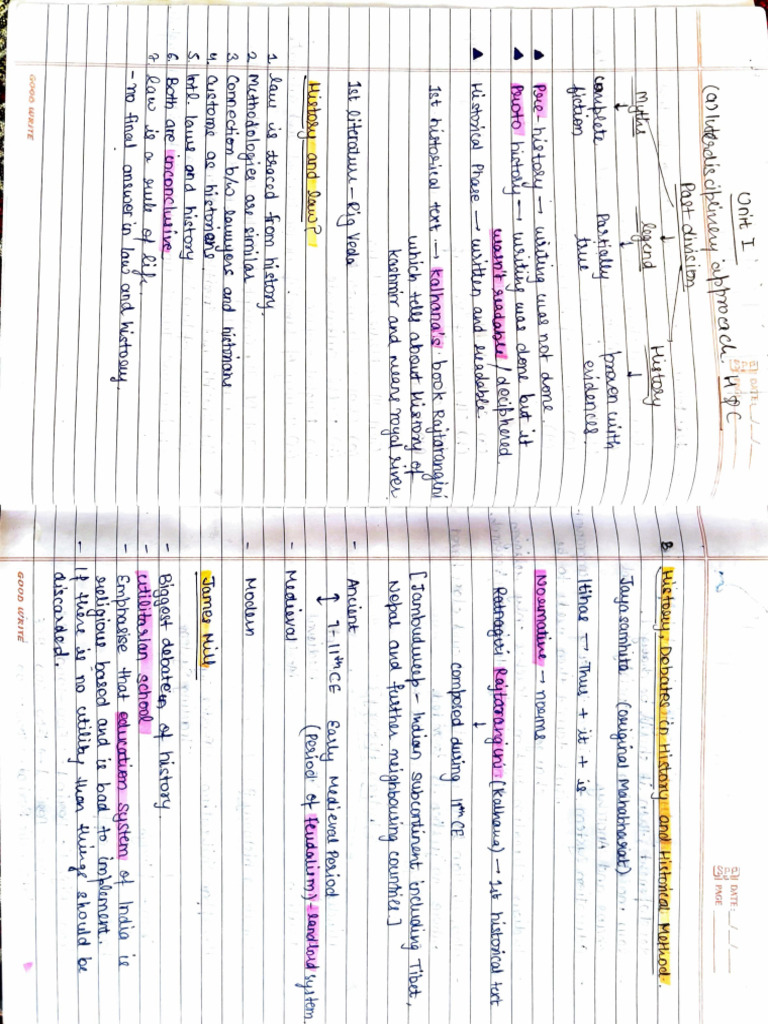 Unit I
(a) Interdisciplinary approach. HDC
DATE: __/__/__
Past division
Myths legend History
complete Partially proven with
fiction true evidences.
▲ Pre-history → writing was not done.
▲ Proto history → writing was done but it
wasn't readable / deciphered.
▲ Historical Phase → written and readable.
1st historical text → Kalhana's book Rajtarangini
which tells about History of
Kashmir and means royal river
1st literature - Rig Veda
History and law?
1. law is traced from history.
2. Methodologies are similar
3. Connection b/w lawyers and historians
4. Customs as historians
5. Intl. laws and history
6. Both are inconclusive
7. law is a rule of life.
- no final answer in law and history.
GOOD WRITE
DATE: __/__/__
PAGE
B History, Debates in History and Historical Method.
Jaya samhita (original Mahabharat)
Itihas → Thus + it + is
Normative → norms
Ratnagiri Rajtarangini (Kalhana) → 1st historical text
↓
composed during 11th CE
[Jambudweep - Indian subcontinent including Tibet,
Nepal and further neighbouring countries.]
- Ancient
↑ 7-11th CE Early Medieval Period
(Period of feudalism) - landlord system.
- Medieval
- Modern
James Mill
- Biggest debater of history.
- utilitarian school
- Emphasise that education system of India is
religious based and is bad to implement.
- If there is no utility than things should be
discarded.
GOOD WRITE